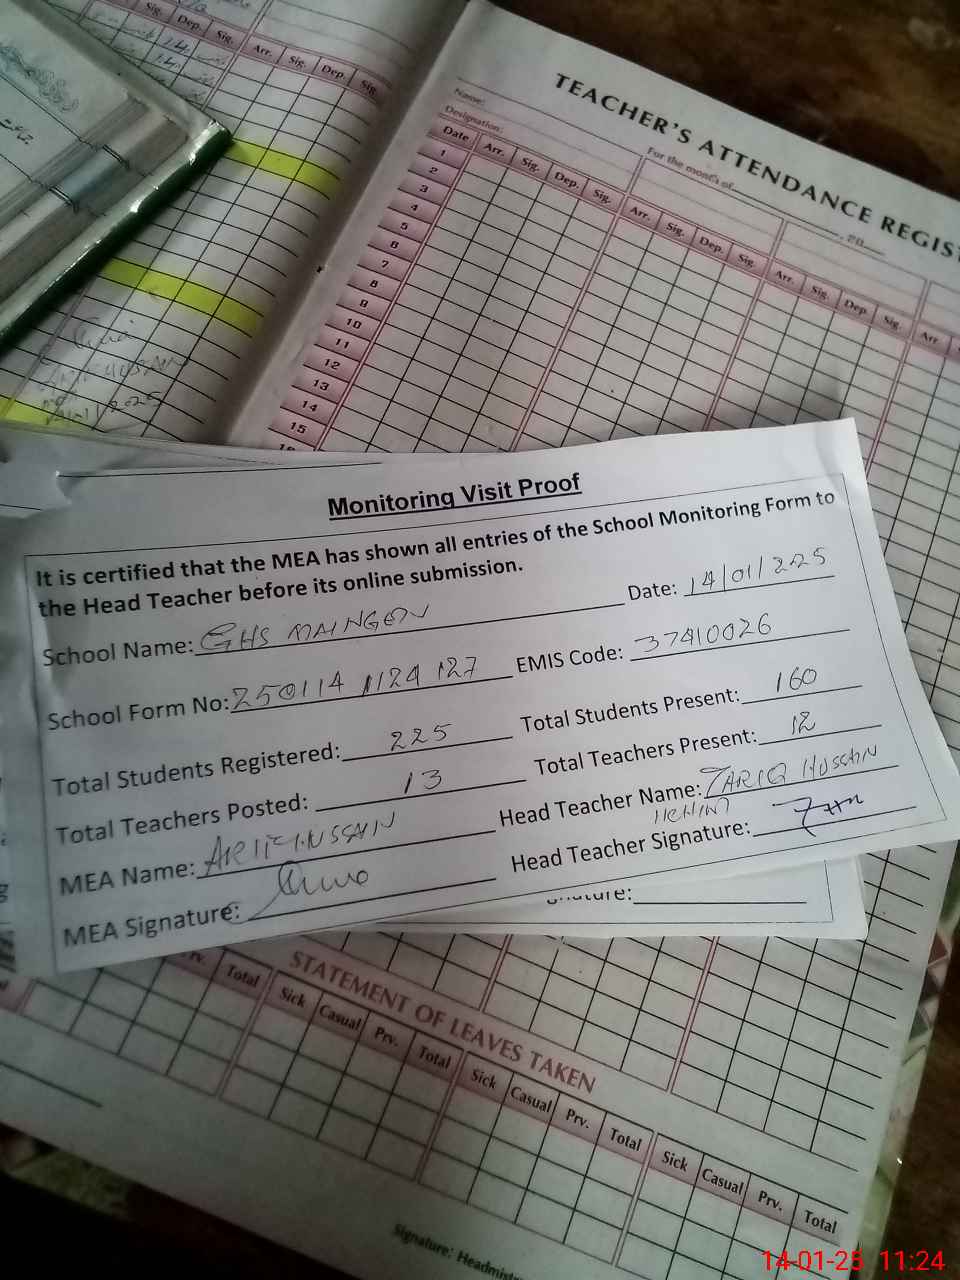 Sig. Dep. Sig. Arr. Sig. Dep. Sig.
TEACHER'S ATTENDANCE REGIST
Name:
Designation:
For the month of , 20
Date Arr. Sig. Dep. Sig. Arr. Sig. Dep. Sig. Arr. Sig. Dep. Sig. Arr
1
2
3
4
5
6
7
8
9
10
11
12
13
14
15
Monitoring Visit Proof
It is certified that the MEA has shown all entries of the School Monitoring Form to
the Head Teacher before its online submission.
School Name: GHS MAINGON Date: 14/01/225
School Form No: 250114 1124 127 EMIS Code: 37410026
Total Students Registered: 225 Total Students Present: 160
Total Teachers Posted: 13 Total Teachers Present: 12
MEA Name: HUSSAIN Head Teacher Name: TARIQ HUSSAIN
MEA Signature: Head Teacher Signature:
STATEMENT OF LEAVES TAKEN
rv. Total Sick Casual Prv. Total Sick Casual Prv. Total Sick Casual Prv. Total
Signature: Headmist
14-01-25 11:24